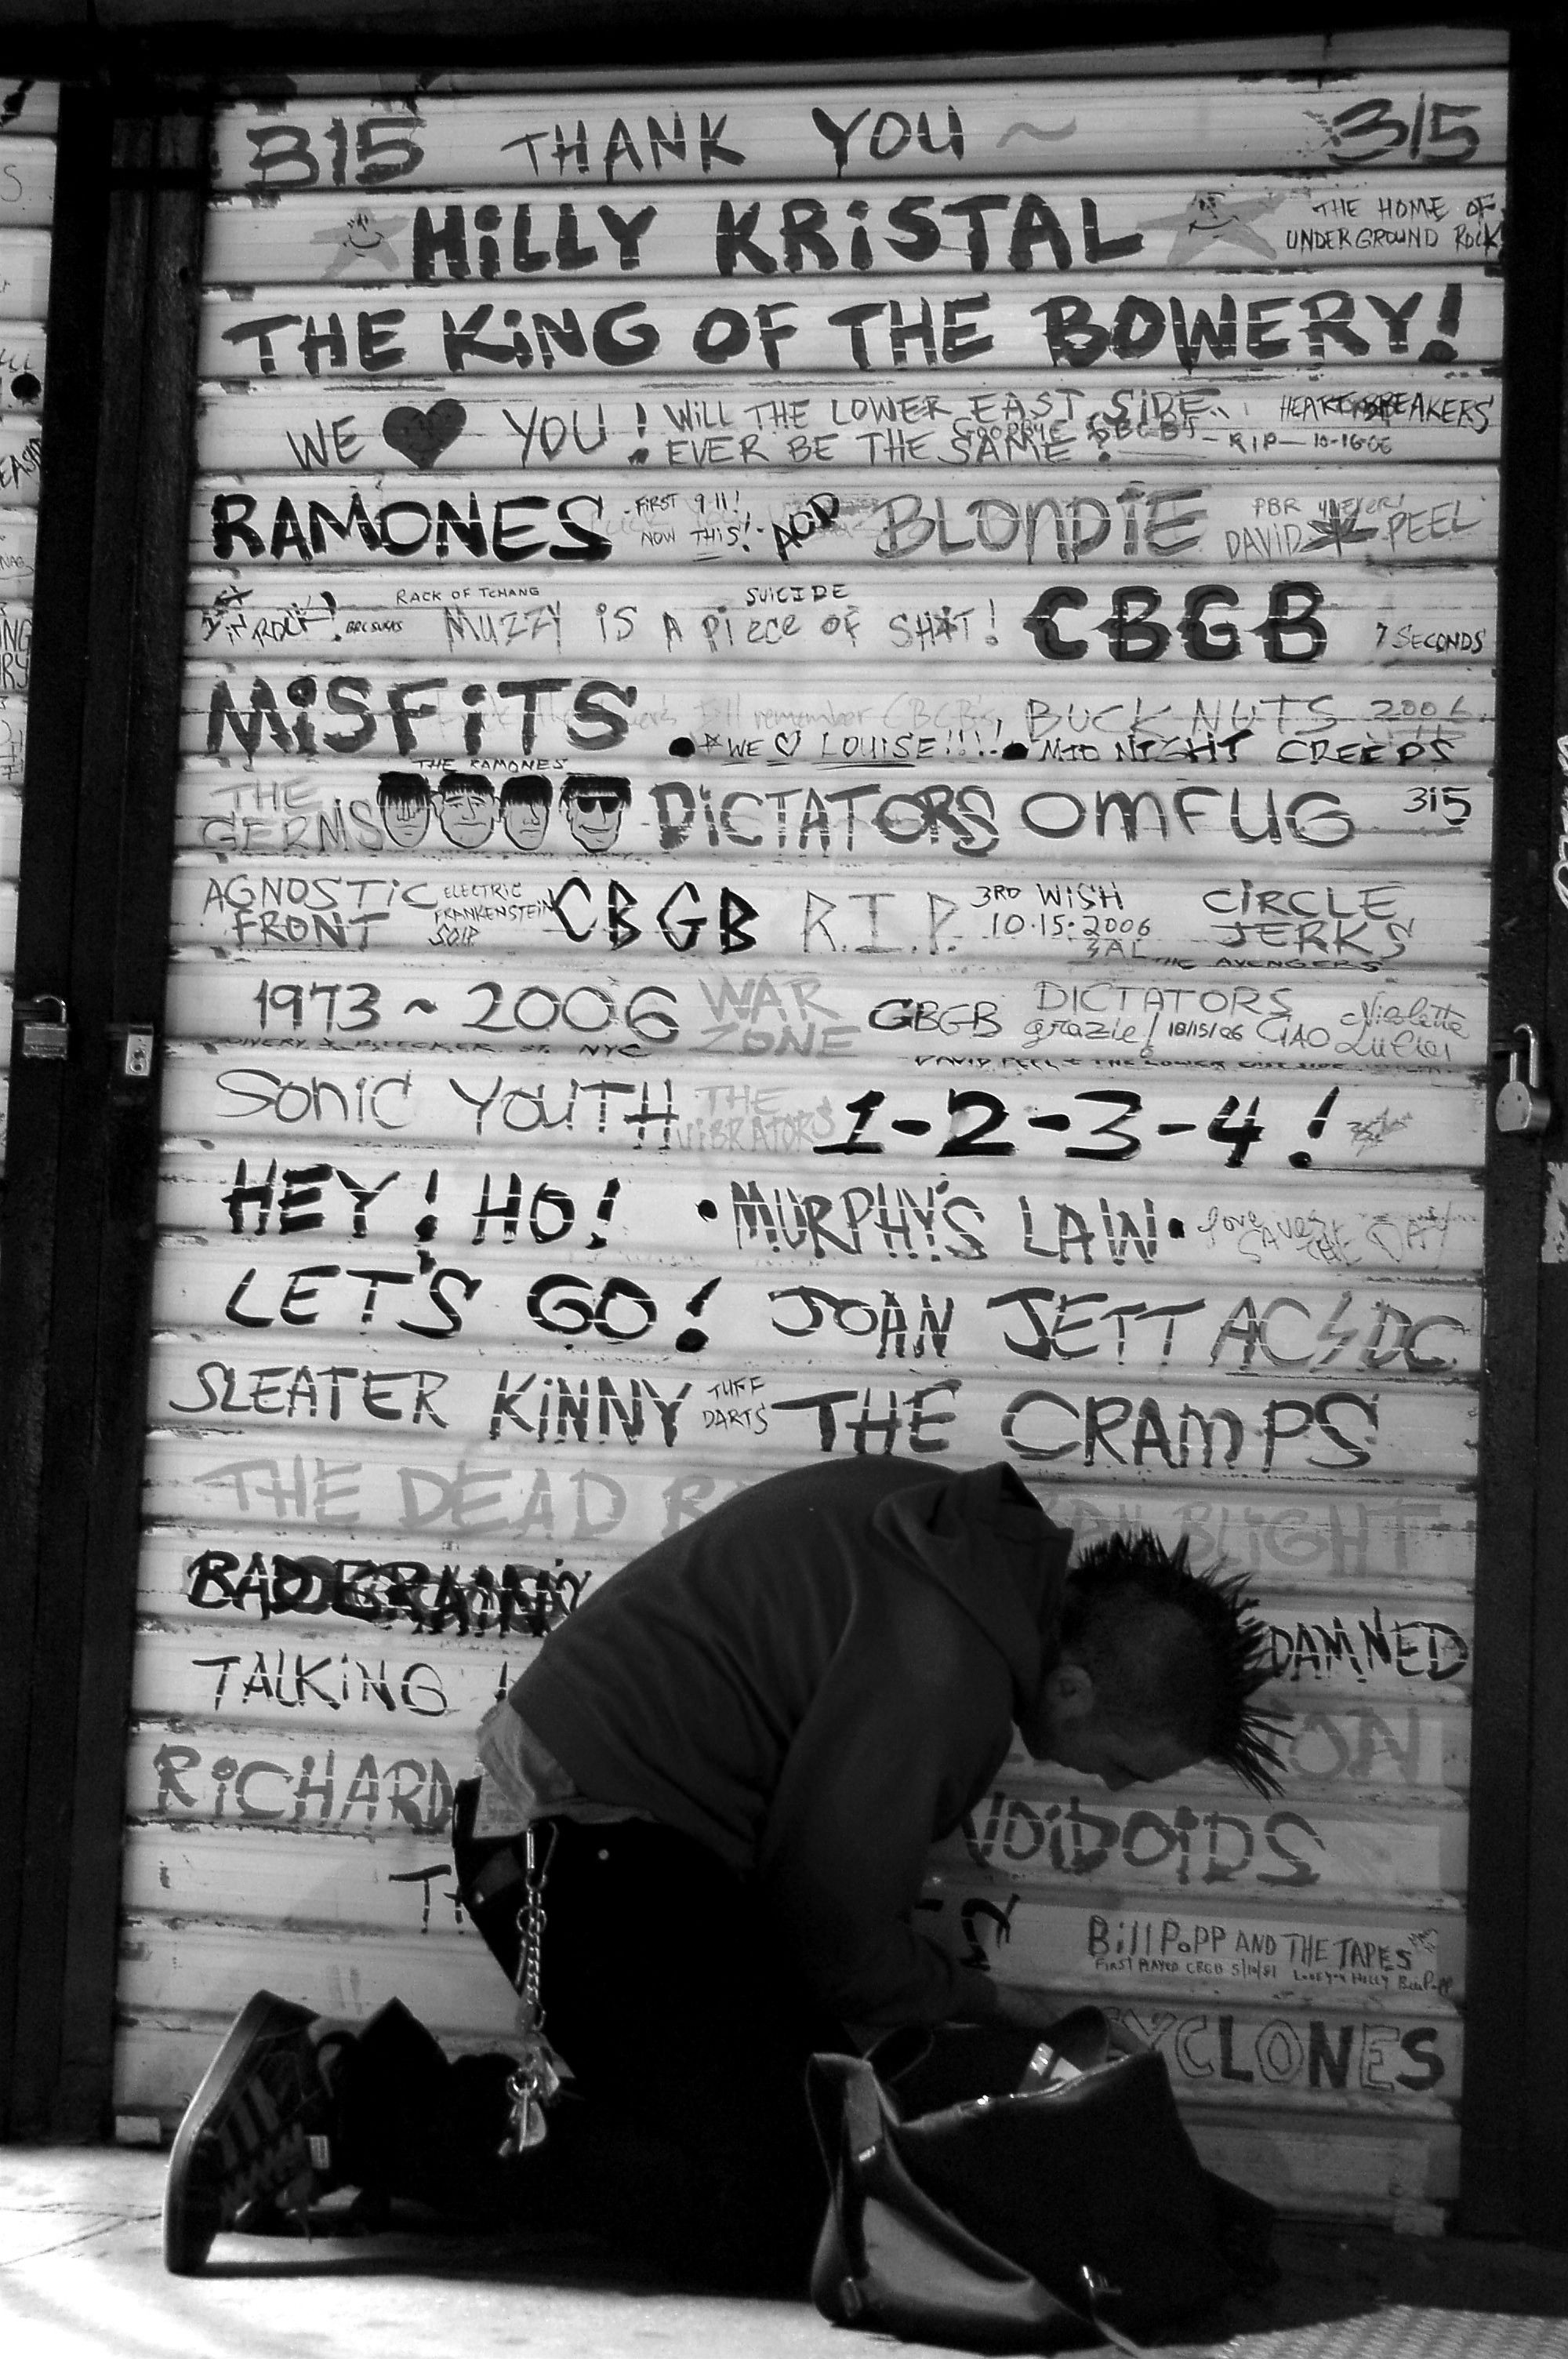 315 THANK YOU ~ 315
HiLLY KRiSTAL
THE HOME OF
UNDERGROUND ROCK
THE KiNG OF THE BOWERY!
WE YOU! WiLL THE LOWER EAST SiDE
EVER BE THE SAME?
GOODBYE CBGB'S
HEARTBREAKERS
R.I.P — 10-16-06
RAMONES
FiRST 9-11!
NOW THiS!
BLONDiE
PBR
DAVID PEEL
ROCK!
RACK OF TCHANG
MUZZY iS A PiECE OF SH*T!
SUiCIDE
CBGB
7 SECONDS
MiSFiTS
I'll remember CBGB's
WE LOUiSE!!!!
BUCK NUTS 2006
MIDNIGHT CREEPS
THE RAMONES
THE
GERMS
DiCTATORS OMFUG 315
AGNOSTiC
FRONT
ELECTRIC
FRANKENSTEIN
CBGB R.I.P.
3RD WiSH
10.15.2006
SAL
CiRCLE
JERKS
THE AVENGERS
1973 ~ 2006
WAR
ZONE
CBGB
DICTATORS
grazie! 10/15/06 CIAO
BOWERY & BLEECKER ST. NYC
DAVID PEEL & THE LOWER EAST SIDE
SONiC YOUTH
THE
ViBRATORS
1-2-3-4!
HEY! HO! MURPHY'S LAW
love saves
THE DAY
LET'S GO! JOAN JETT AC/DC
SLEATER KiNNY
TUFF
DARTS
THE CRAMPS
THE DEAD B
BLiGHT
BAD
DAMNED
TALKiNG
RiCHARD
VOiDOiDS
Bill POPP AND THE TAPES
FIRST PLAYED CBGB 5/10/81 LOVE YOU HILLY Bill Popp
CYCLONES